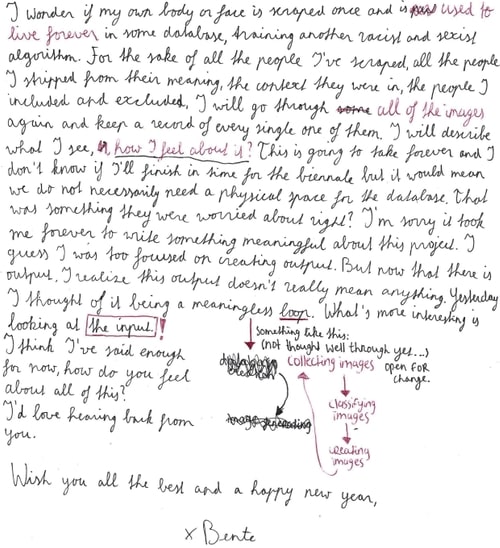 I wonder if my own body or face is scraped once and is used to
live forever in some database, training another racist and sexist
algorithm. For the sake of all the people I've scraped, all the people
I stripped from their meaning, the context they were in, the people I
included and excluded, I will go through some all of the images
again and keep a record of every single one of them. I will describe
what I see, how I feel about it? This is going to take forever and I
don't know if I'll finish in time for the biennale but it would mean
we do not necessarily need a physical space for the database. That
was something they were worried about right? I'm sorry it took
me forever to write something meaningful about this project. I
guess I was too focused on creating output. But now that there is
output, I realize this output doesn't really mean anything. Yesterday
I thought of it being a meaningless loop. What's more interesting is
looking at the input!
I think I've said enough
for now, how do you feel
about all of this?
I'd love hearing back from
you.
something like this:
(not thought well through yet...)
collecting images
open FOR
change.
classifying
images
creating
images
image generating
Wish you all the best and a happy new year,
x Bente